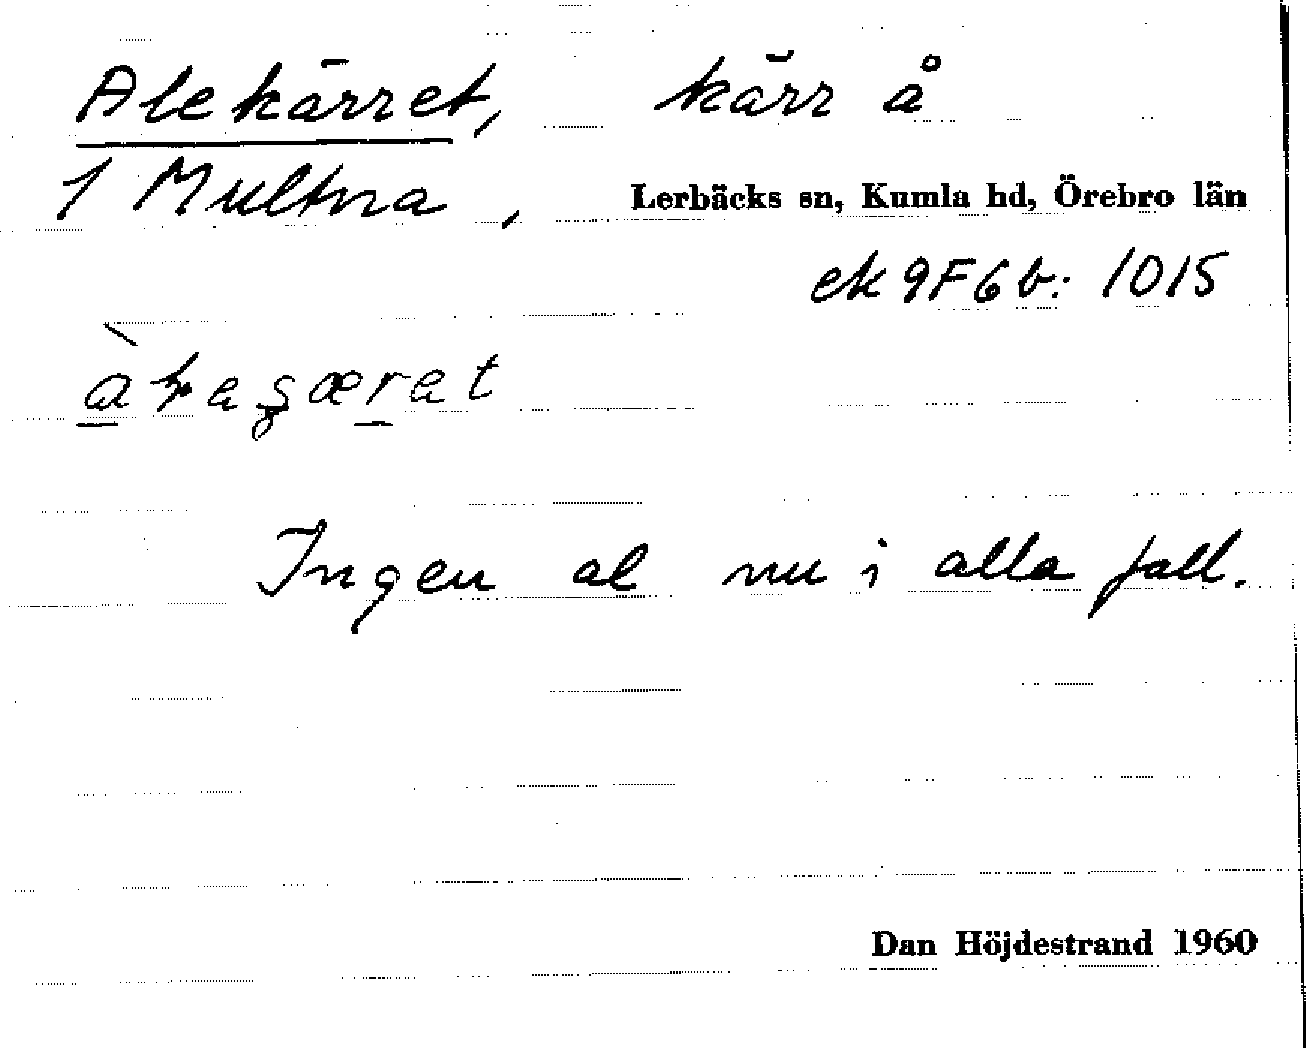 Alekärret, kärr å
1 Multna, Lerbäcks sn, Kumla hd, Örebro län
ek 9F6b: 1015
Ingen al nu i alla fall.
Dan Höjdestrand 1960